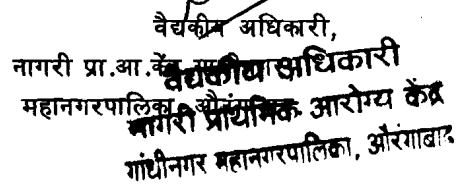 वैद्यकीय अधिकारी,
नागरी प्रा.आ.केंद्र
महानगरपालिका, औरंगाबाद
वैद्यकीय अधिकारी
नागरी प्राथमिक आरोग्य केंद्र
गांधीनगर महानगरपालिका, औरंगाबाद